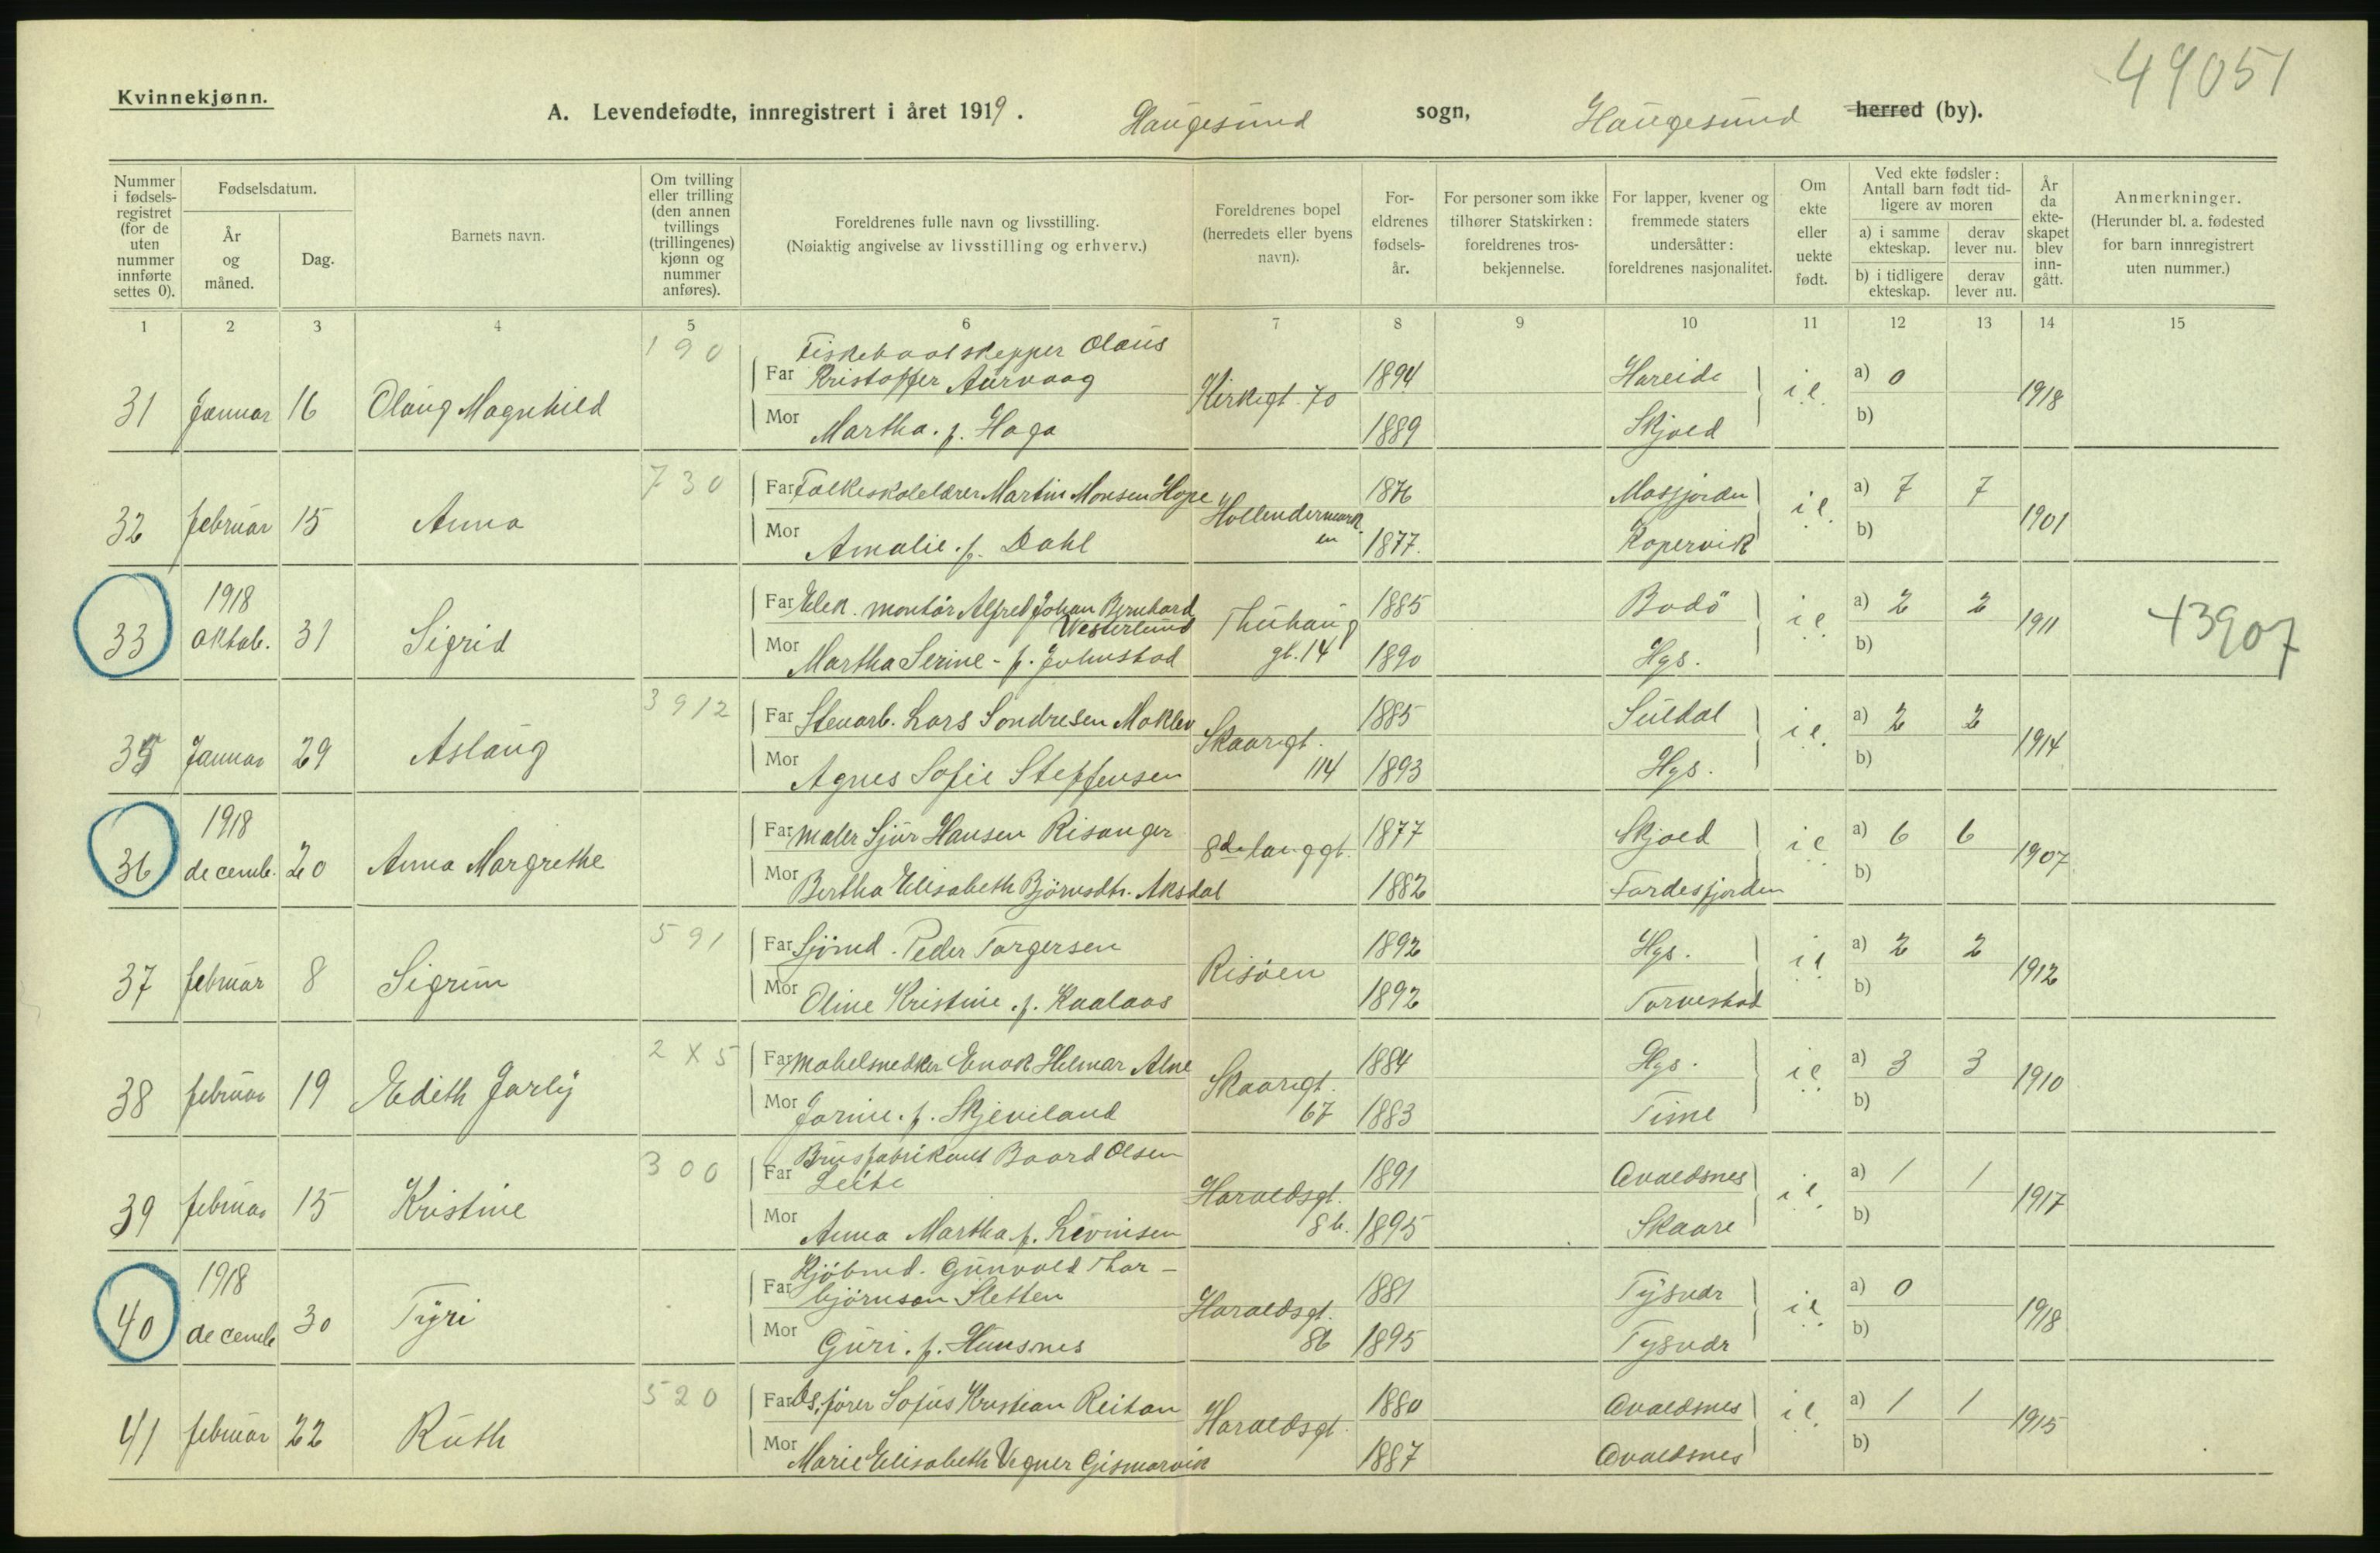 49051
Kvinnekjønn.
A. Levendefødte, innregistrert i året 1919. Haugesund sogn, Haugesund herred (by).
Nummer i fødsels-registret (for de uten nummer innførte settes 0).
Fødselsdatum.
År og måned.
Dag.
Barnets navn.
Om tvilling eller trilling (den annen tvillings (trillingenes) kjønn og nummer anføres).
Foreldrenes fulle navn og livsstilling.
(Nøiaktig angivelse av livsstilling og erhverv.)
Foreldrenes bopel (herredets eller byens navn).
For-eldrenes fødsels-år.
For personer som ikke tilhører Statskirken: foreldrenes tros-bekjennelse.
For lapper, kvener og fremmede staters undersåtter: foreldrenes nasjonalitet.
Om ekte eller uekte født.
Ved ekte fødsler: Antall barn født tid-ligere av moren
a) i samme ekteskap.
derav lever nu.
b) i tidligere ekteskap.
derav lever nu.
År da ekte-skapet blev inn-gått.
Anmerkninger.
(Herunder bl. a. fødested for barn innregistrert uten nummer.)
1 2 3 4 5 6 7 8 9 10 11 12 13 14 15
190
Fiskebaatskepper Olaus
Far Kristoffer Aurvaag 1894 Hareide a) 0
31 Januar 16 Olaug Magnhild Kirkegt. 70 i e. 1918
Mor Martha. f. Haga 1889 Skjold b)
730
Far Folkeskolelærer Martin Monsen Hope 1876 Masfjorden a) 7 7
32 februar 15 Anna Hollendermark en i e. 1901
Mor Amalie. f. Dahl 1877. Kopervik b)
1918
Far Elek. montör Alfred Johan Bernhard Westerlund 1885 Bodö a) 2 2
33 oktob. 31 Sigrid Thuhaug gt. 14 i e. 1911 43907
Mor Martha Serine - f. Johnstad 1890 Hgs. b)
3912
Far Stenarb. Lars Sondresen Moklev 1885 Suldal a) 2 2
35 Januar 29 Aslaug Skaaregt. 114 i e. 1914
Mor Agnes Sofie Steffensen 1893 Hgs. b)
1918
Far maler Sjur Hansen Risanger 1877 Skjold a) 6 6
36 decemb. 20 Anna Margrethe 8de langgt. i e 1907
Mor Bertha Elisabeth Björnsdtr. Aksdal 1882 Førdesfjorden b)
591
Far Sjömd. Peder Torgersen 1892 Hgs. a) 2 2
37 februar 8 Sigrun Risöen i e 1912
Mor Oline Kristine. f. Kaalaas 1892 Torvestad b)
2 x 5
Far møbelsnedker Enok Helmar Alne 1884 Hgs. a) 3 3
38 februar 19 Edith Jarly Skaaregt. 67 i e 1910
Mor Jorine. f. Skjeveland 1883 Time b)
300
Brusfabrikant Baard Olsen
Far Leite 1891 Avaldsnes a) 1 1
39 februar 15 Kristine Haraldsgt. 8b. i e. 1917
Mor Anna Martha f. Levinsen 1895 Skaare b)
1918
Kjöbmd. Gunvald Thor-
Far björnson Sletten 1881 Tysvær a) 0
40 decemb 30 Tyri Haraldsgt. 86 i e. 1918
Mor Guri. f. Hunsnes 1895 Tysvær b)
520
Far Os. förer Sofus Kristian Reitan 1880 Avaldsnes a) 1 1
41 februar 22 Ruth Haraldsgt. i e. 1915
Mor Marie Elisabeth Vegner Gismarvik 1887 Avaldsnes b)